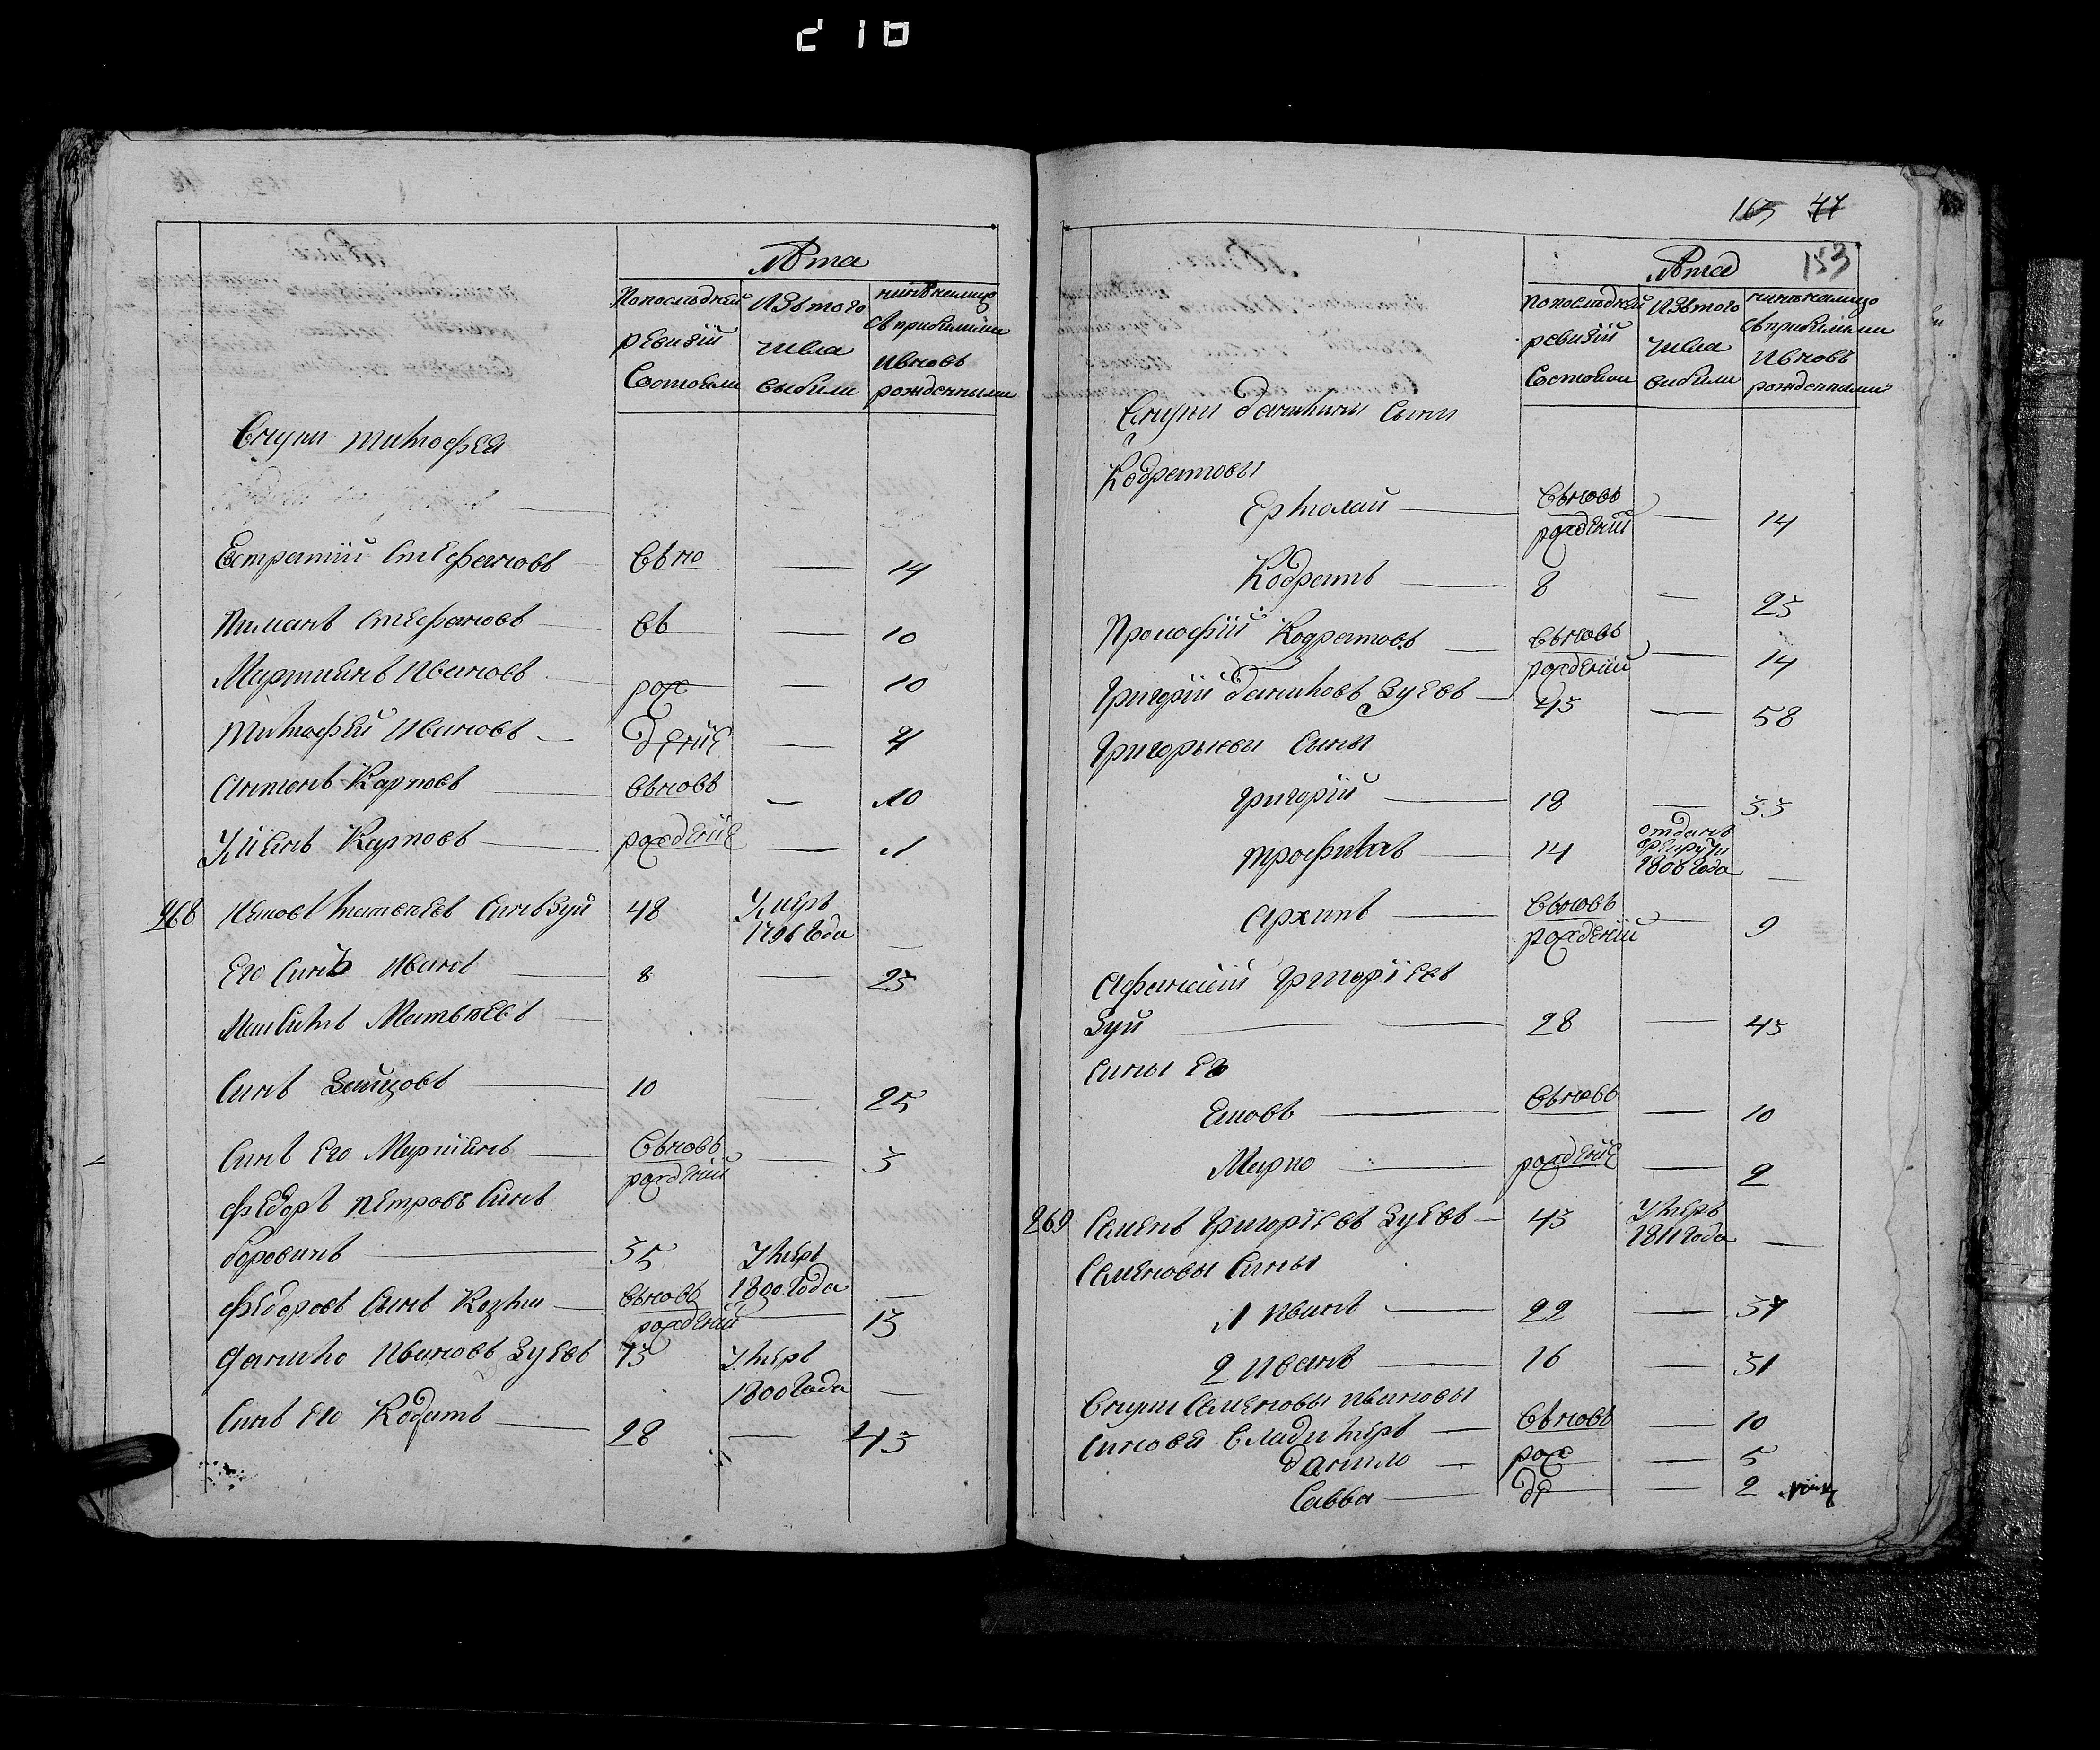 210
Лѣта
Попослѣдней ревизіи Состояли
Изътого числа выбыли
нынѣналицо Съприбылыми Ивновь рожденными
Внуки тимофея
Евстратий Стефановъ вьно — 14
Пиманъ Стефановъ въ — 10
Мартинъ Ивановъ рож — 10
Тимофей Ивановъ дение — 4
Антонъ Карповъ вьновь — 10
Карповъ рождение — 1
268 Матвѣевъ Сынъ Зуй 48 Умеръ 1796 года —
Его Сынъ Иванъ 8 — 23
Максимъ Матвѣевъ
Сынъ Зайцовъ 10 — 25
Сынъ Его Мартинъ Вьновь рождений — 3
Федоръ Петровъ Сынъ
боровинъ 35 Умеръ 1800 года —
Федоровъ Сынъ Козма вьновь рождений — 13
Данило Ивановъ Зуевъ 73 Умеръ 1800 года —
Сынъ Его Кодратъ 28 — 43
163 47
153
Лѣта
Попослѣдней ревизіи Состояли
Изътого числа выбыли
нынѣналицо Съприбылыми Ивновь рожденными
Внуки Данилины Сыны
Кодратовы
Ермолай Вьновь рождений — 14
Кодратъ 8 — 23
Прокофий Кодратовъ Вьновь рождений — 14
Григорий Даниловъ Зуевъ 43 — 58
Григорьевы Сыны
Григорий 18 — 33
Трофимъ 14 отданъ врекруты 1808 года —
Архипъ Вьновь рождений — 9
Афанасий Григориевъ
Зуй 28 — 43
Сины Его
Вьновь — 10
Марко рождение — 2
269 Семенъ Григориевъ Зуевъ 43 Умеръ 1811 года —
Семеновы Сины
1 Иванъ 22 — 37
2 Иванъ 16 — 31
Внуки Семеновы Ивановы
Синовя Владимеръ Вьновь — 10
Данило рож — 5
Савва де — 2